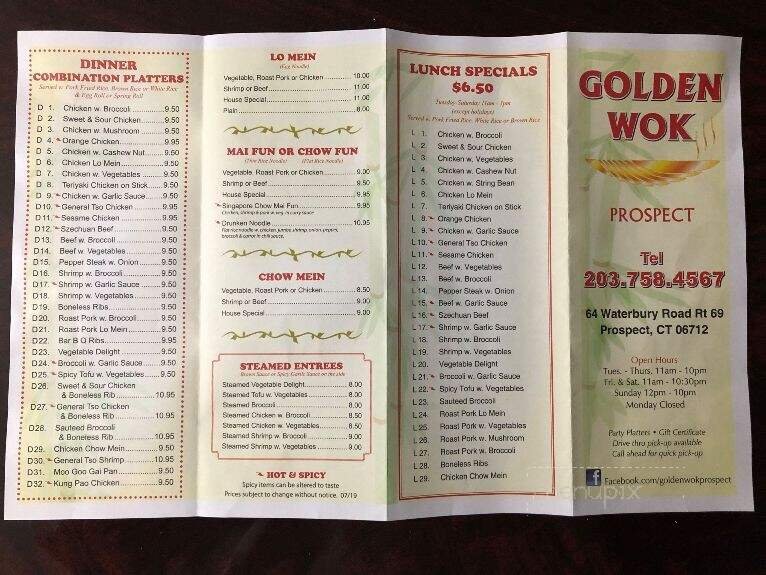 DINNER
COMBINATION PLATTERS
Served w. Pork Fried Rice, Brown Rice or White Rice
& Egg Roll or Spring Roll
D 1. Chicken w. Broccoli 9.50
D 2. Sweet & Sour Chicken 9.50
D 3. Chicken w. Mushroom 9.50
D 4. Orange Chicken 9.95
D 5. Chicken w. Cashew Nut 9.50
D 6. Chicken Lo Mein 9.50
D 7. Chicken w. Vegetables 9.50
D 8. Teriyaki Chicken on Stick 9.50
D 9. Chicken w. Garlic Sauce 9.50
D10. General Tso Chicken 9.95
D11. Sesame Chicken 9.95
D12. Szechuan Beef 9.50
D13. Beef w. Broccoli 9.50
D14. Beef w. Vegetables 9.50
D15. Pepper Steak w. Onion 9.50
D16. Shrimp w. Broccoli 9.50
D17. Shrimp w. Garlic Sauce 9.50
D18. Shrimp w. Vegetables 9.50
D19. Boneless Ribs 9.50
D20. Roast Pork w. Broccoli 9.50
D21. Roast Pork Lo Mein 9.50
D22. Bar B Q Ribs 9.95
D23. Vegetable Delight 9.50
D24. Broccoli w. Garlic Sauce 9.50
D25. Spicy Tofu w. Vegetables 9.50
D26. Sweet & Sour Chicken
& Boneless Rib 10.95
D27. General Tso Chicken
& Boneless Rib 10.95
D28. Sauteed Broccoli
& Boneless Rib 10.95
D29. Chicken Chow Mein 9.50
D30. General Tso Shrimp 10.95
D31. Moo Goo Gai Pan 9.50
D32. Kung Pao Chicken 9.50
LO MEIN
(Egg Noodle)
Vegetable, Roast Pork or Chicken 10.00
Shrimp or Beef 11.00
House Special 11.00
Plain 8.00
MAI FUN OR CHOW FUN
(Thin Rice Noodle) (Flat Rice Noodle)
Vegetable, Roast Pork or Chicken 9.00
Shrimp or Beef 9.50
House Special 9.95
Singapore Chow Mai Fun 9.95
Chicken, shrimp & pork w. veg. in curry sauce
Drunken Noodle 10.95
Flat rice noodle w. chicken, jumbo shrimp, onion, pepper,
broccoli & carrot in chili sauce.
CHOW MEIN
Vegetable, Roast Pork or Chicken 8.50
Shrimp or Beef 9.00
House Special 9.00
STEAMED ENTREES
Brown Sauce or Spicy Garlic Sauce on the side
Steamed Vegetable Delight 8.00
Steamed Tofu w. Vegetables 8.00
Steamed Broccoli 8.00
Steamed Chicken w. Broccoli 8.50
Steamed Chicken w. Vegetables 8.50
Steamed Shrimp w. Broccoli 9.00
Steamed Shrimp w. Vegetables 9.00
HOT & SPICY
Spicy items can be altered to taste
Prices subject to change without notice. 07/19
LUNCH SPECIALS
$6.50
Tuesday-Saturday 11am - 3pm
(except holidays)
Served w. Pork Fried Rice, White Rice or Brown Rice
L 1. Chicken w. Broccoli
L 2. Sweet & Sour Chicken
L 3. Chicken w. Vegetables
L 4. Chicken w. Cashew Nut
L 5. Chicken w. String Bean
L 6. Chicken Lo Mein
L 7. Teriyaki Chicken on Stick
L 8. Orange Chicken
L 9. Chicken w. Garlic Sauce
L 10. General Tso Chicken
L 11. Sesame Chicken
L 12. Beef w. Vegetables
L 13. Beef w. Broccoli
L 14. Pepper Steak w. Onion
L 15. Beef w. Garlic Sauce
L 16. Szechuan Beef
L 17. Shrimp w. Garlic Sauce
L 18. Shrimp w. Broccoli
L 19. Shrimp w. Vegetables
L 20. Vegetable Delight
L 21. Broccoli w. Garlic Sauce
L 22. Spicy Tofu w. Vegetables
L 23. Sauteed Broccoli
L 24. Roast Pork Lo Mein
L 25. Roast Pork w. Vegetables
L 26. Roast Pork w. Mushroom
L 27. Roast Pork w. Broccoli
L 28. Boneless Ribs
L 29. Chicken Chow Mein
GOLDEN
WOK
PROSPECT
Tel
203.758.4567
64 Waterbury Road Rt 69
Prospect, CT 06712
Open Hours
Tues. - Thurs. 11am - 10pm
Fri. & Sat. 11am - 10:30pm
Sunday 12pm - 10pm
Monday Closed
Party Platters • Gift Certificate
Drive thru pick-up available
Call ahead for quick pick-up
f Facebook.com/goldenwokprospect
menupix